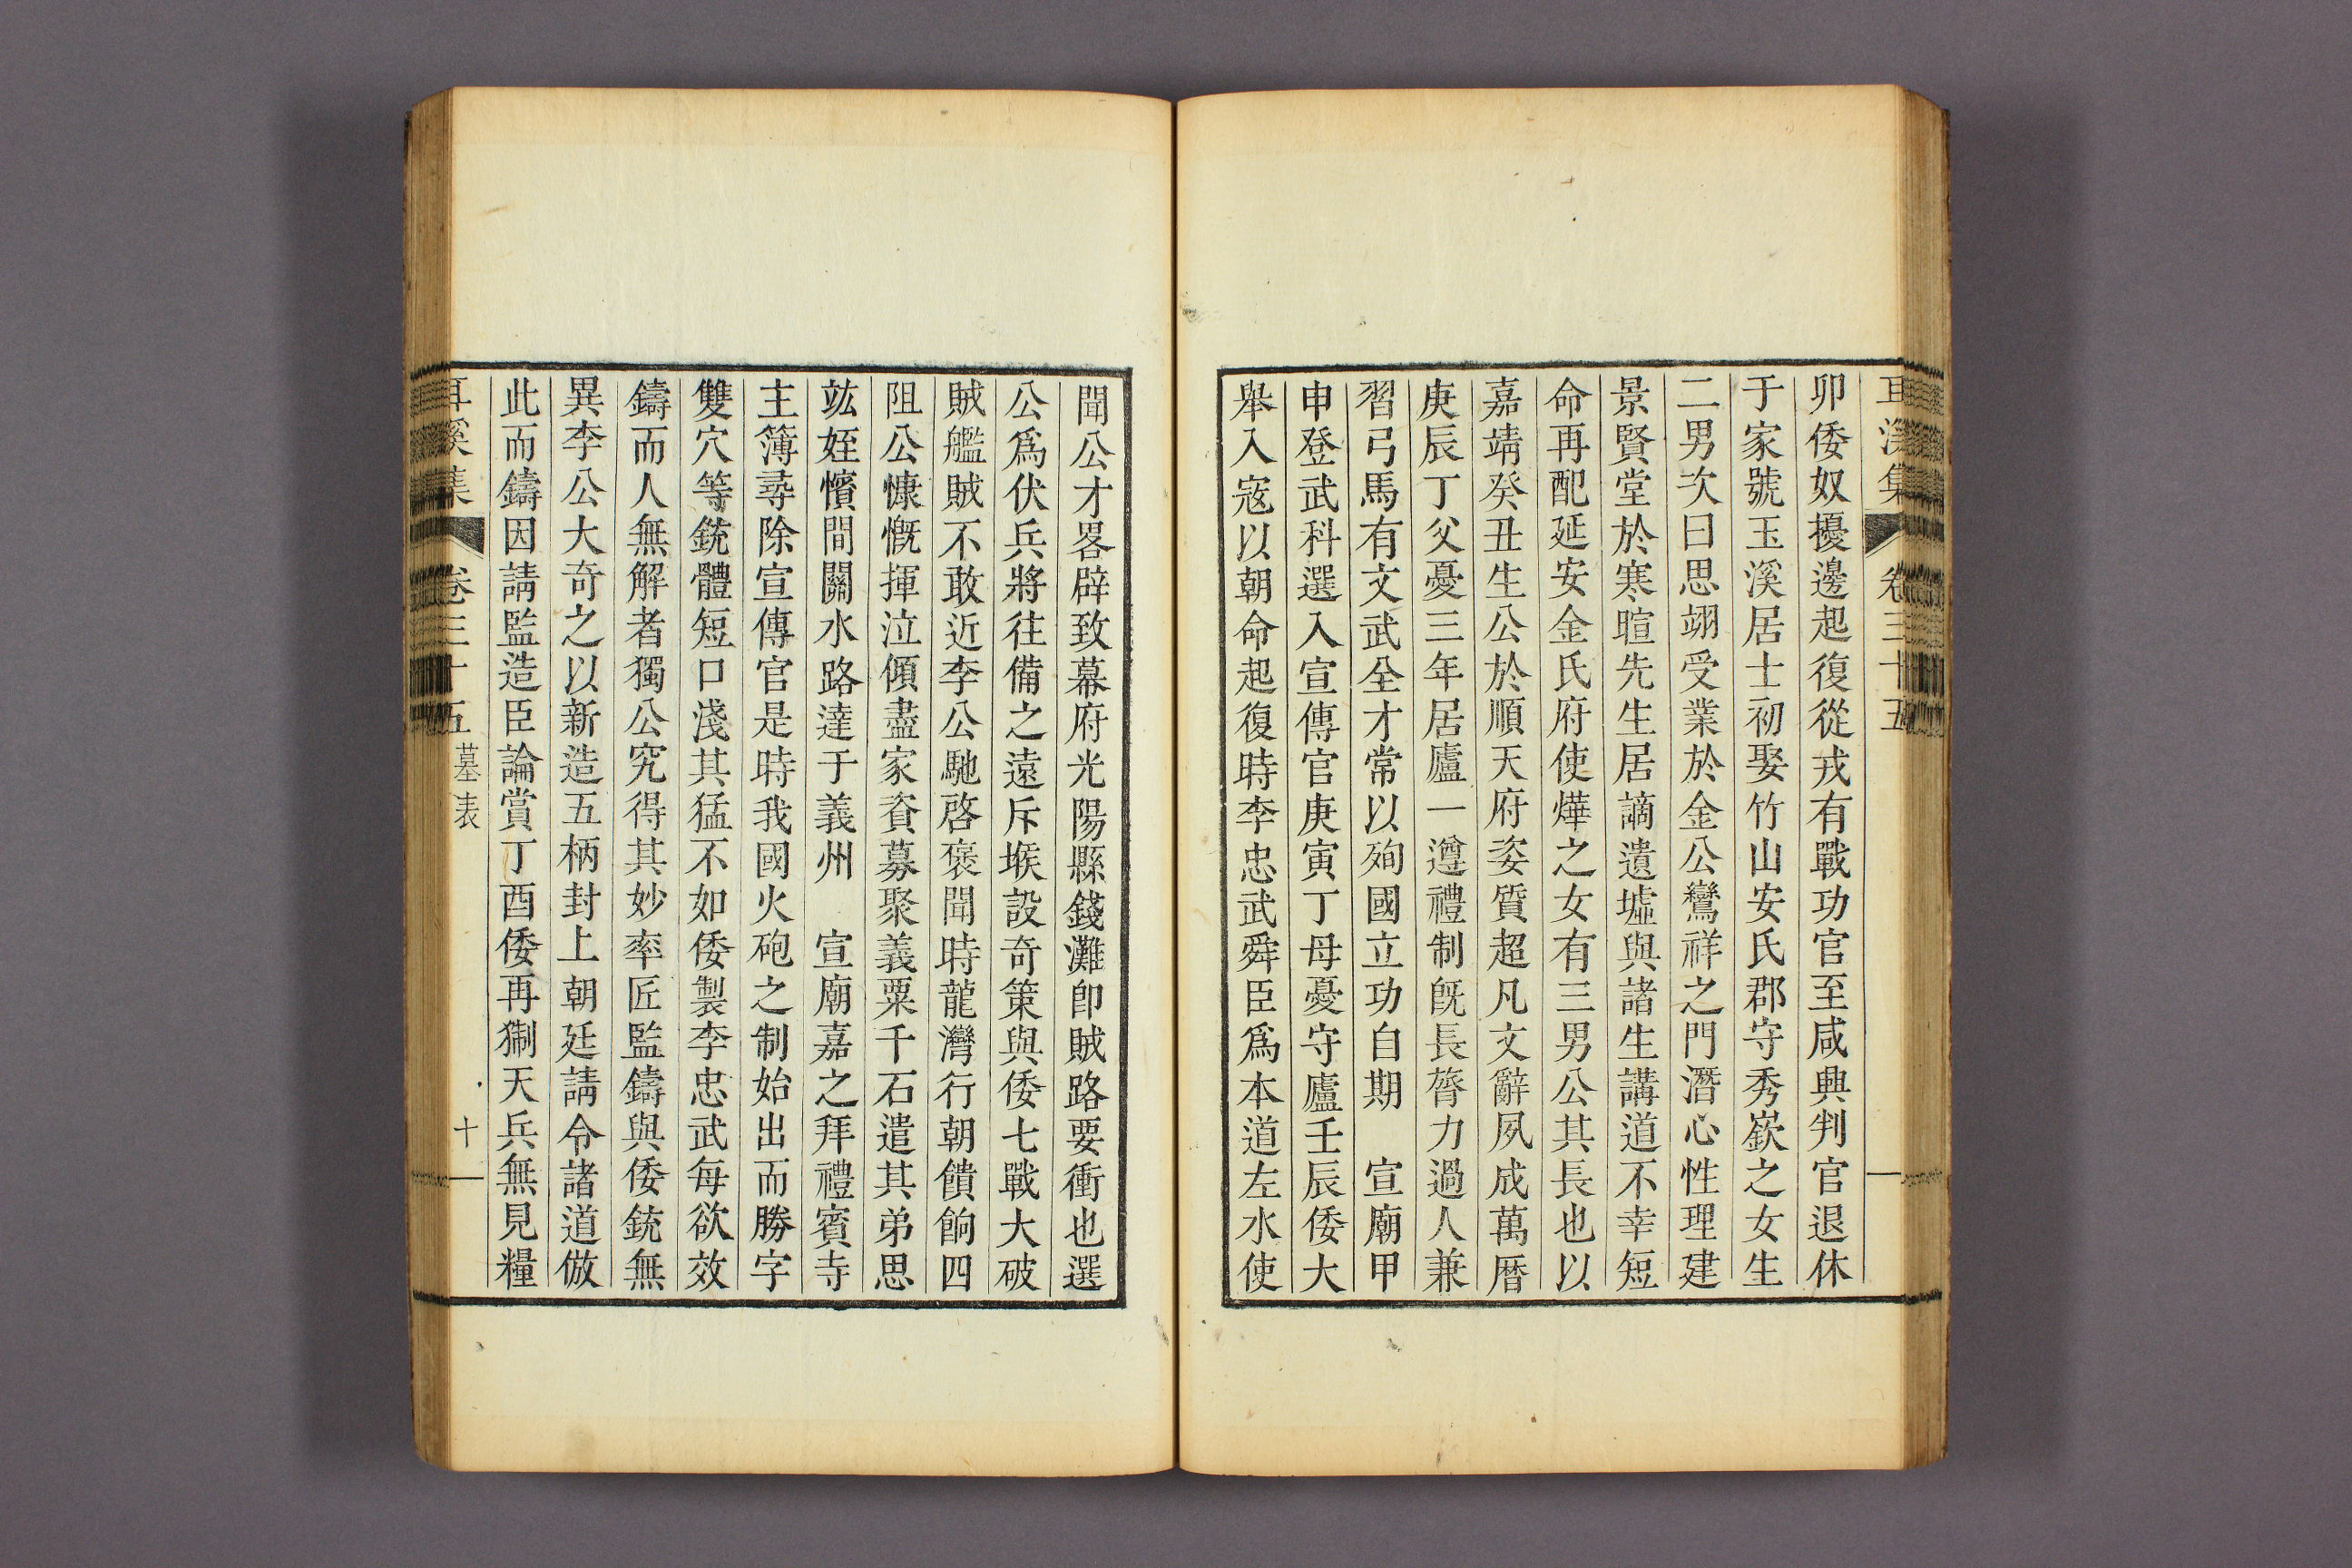 耳溪集 卷三十五
卯倭奴擾邊起復從戎有戰功官至咸興判官退休
于家號玉溪居士初娶竹山安氏郡守秀嶔之女生
二男次曰思翊受業於金公鸞祥之門潛心性理建
景賢堂於寒暄先生居謫遺墟與諸生講道不幸短
命再配延安金氏府使燁之女有三男公其長也以
嘉靖癸丑生公於順天府姿質超凡文辭夙成萬曆
庚辰丁父憂三年居廬一遵禮制旣長膂力過人兼
習弓馬有文武全才常以殉國立功自期 宣廟甲
申登武科選入宣傳官庚寅丁母憂守廬壬辰倭大
舉入寇以朝命起復時李忠武舜臣爲本道左水使
聞公才畧辟致幕府光陽縣錢灘卽賊路要衝也選
公爲伏兵將往備之遠斥堠設奇策與倭七戰大破
賊艦賊不敢近李公馳啓褒聞時龍灣行朝饋餉四
阻公慷慨揮泣傾盡家資募聚義粟千石遣其弟思
竑姪懭間關水路達于義州 宣廟嘉之拜禮賓寺
主簿尋除宣傳官是時我國火砲之制始出而勝字
雙穴等銃體短口淺其猛不如倭製李忠武每欲效
鑄而人無解者獨公究得其妙率匠監鑄與倭銃無
異李公大奇之以新造五柄封上朝廷請令諸道倣
此而鑄因請監造臣論賞丁酉倭再猘天兵無見糧
耳溪集 卷三十五 墓表 十